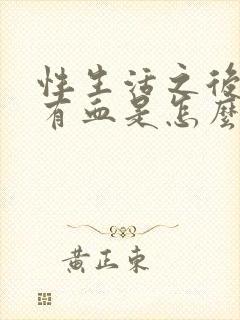 性生活之後
有血是怎麼
黃正東